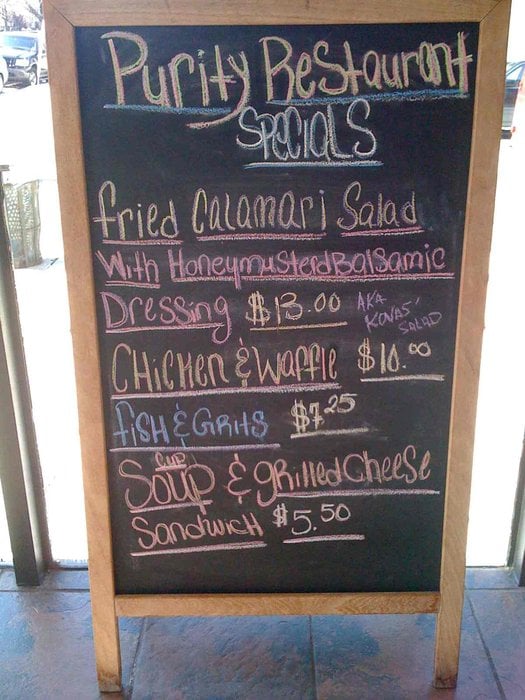 Purity Restaurant
SPECIALS
fried Calamari Salad
With HoneymusterdBalsamic
Dressing $13.00
AKA
KOVAS'
SALAD
CHicken & Waffle $10.00
fisH & GRits $7.25
CUP
Soup & grilled Cheese
SandwicH $5.50